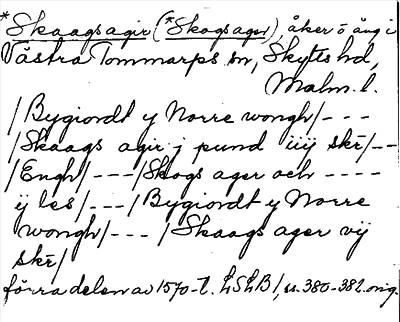 *Skaagsagir (*Skogsager), åker o äng i
Västra Tommarps sn, Skytts hd,
Malm. l.
/Bygiordt y Norre wongh/---
/Skaags agir j pund iiij skr/--
/Engh/---/Skogs ager och ----
ij les/---/Bygiordt y Norre
wongh/---/Skaags ager vij
skr/
förra delen av 1570-t. LSLB1, ss. 380-382. orig.